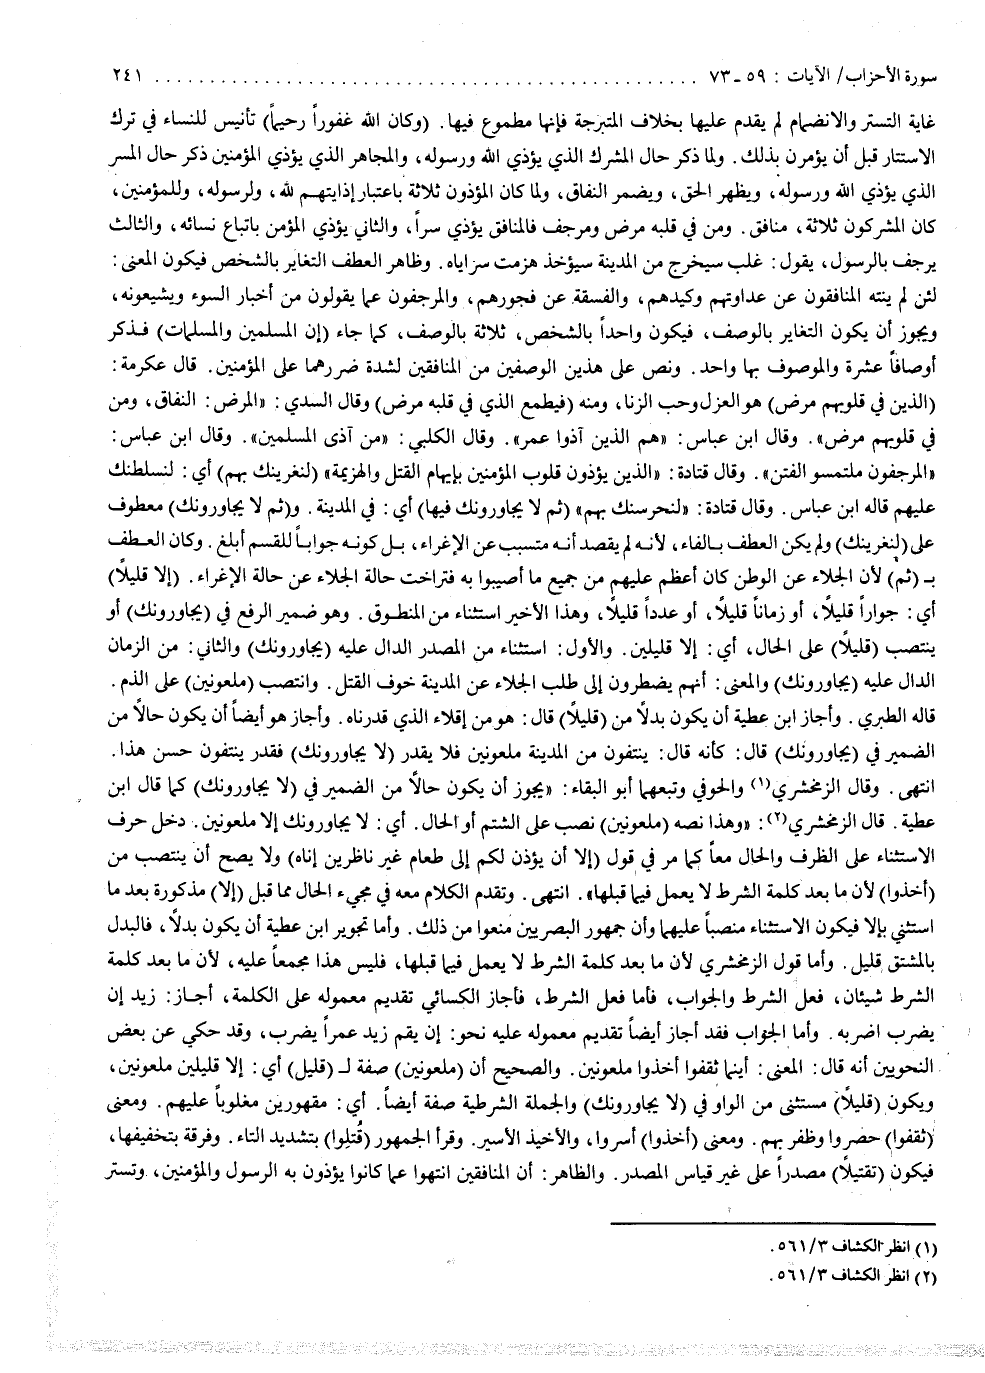 سورة الأحزاب/ الآيات : ٥٩ ـ ٧٣ . . . . . . . . . . . . . . . . . . . . . . . . . . . . . . . . . . . . . . . . . . . . ٢٤١
غاية التستر والانضمام لم يقدم عليها بخلاف المتبرجة فإنها مطموع فيها. (وكان الله غفوراً رحيماً) تأنيس للنساء في ترك
الاستتار قبل أن يؤمرن بذلك. ولما ذكر حال المشرك الذي يؤذي الله ورسوله، والمجاهر الذي يؤذي المؤمنين ذكر حال المسر
الذي يؤذي الله ورسوله، ويظهر الحق، ويضمر النفاق، ولما كان المؤذون ثلاثة باعتبار إذايتهم لله، ولرسوله، وللمؤمنين،
كان المشركون ثلاثة، منافق. ومن في قلبه مرض ومرجف فالمنافق يؤذي سراً، والثاني يؤذي المؤمن باتباع نسائه، والثالث
يرجف بالرسول، يقول: غلب سيخرج من المدينة سيؤخذ هزمت سراياه. وظاهر العطف التغاير بالشخص فيكون المعنى:
لئن لم ينته المنافقون عن عداوتهم وكيدهم، والفسقة عن فجورهم، والمرجفون عما يقولون من أخبار السوء ويشيعونه،
ويجوز أن يكون التغاير بالوصف، فيكون واحداً بالشخص، ثلاثة بالوصف، كما جاء (إن المسلمين والمسلمات) فذكر
أوصافاً عشرة والموصوف بها واحد. ونص على هذين الوصفين من المنافقين لشدة ضررهما على المؤمنين. قال عكرمة:
(الذين في قلوبهم مرض) هو العزل وحب الزنا، ومنه (فيطمع الذي في قلبه مرض) وقال السدي: «المرض: النفاق، ومن
في قلوبهم مرض». وقال ابن عباس: «هم الذين آذوا عمر». وقال الكلبي: «من آذى المسلمين». وقال ابن عباس:
«المرجفون ملتمسو الفتن». وقال قتادة: «الذين يؤذون قلوب المؤمنين بإيهام القتل والهزيمة» (لنغرينك بهم) أي: لنسلطنك
عليهم قاله ابن عباس. وقال قتادة: «لنحرسنك بهم» (ثم لا يجاورونك فيها) أي: في المدينة. و(ثم لا يجاورونك) معطوف
على (لنغرينك) ولم يكن العطف بالفاء، لأنه لم يقصد أنه متسبب عن الإغراء، بل كونه جواباً للقسم أبلغ. وكان العطف
بـ (ثم) لأن الجلاء عن الوطن كان أعظم عليهم من جميع ما أصيبوا به فتراخت حالة الجلاء عن حالة الإغراء. (إلا قليلاً)
أي: جواراً قليلاً، أو زماناً قليلاً، أو عدداً قليلاً، وهذا الأخير استثناء من المنطوق. وهو ضمير الرفع في (يجاورونك) أو
ينتصب (قليلاً) على الحال، أي: إلا قليلين. والأول: استثناء من المصدر الدال عليه (يجاورونك) والثاني: من الزمان
الدال عليه (يجاورونك) والمعنى: أنهم يضطرون إلى طلب الجلاء عن المدينة خوف القتل. وانتصب (ملعونين) على الذم.
قاله الطبري. وأجاز ابن عطية أن يكون بدلاً من (قليلاً) قال: هو من إقلاء الذي قدرناه. وأجاز هو أيضاً أن يكون حالاً من
الضمير في (يجاورونك) قال: كأنه قال: ينتفون من المدينة ملعونين فلا يقدر (لا يجاورونك) فقدر ينتفون حسن هذا.
انتهى. وقال الزمخشري(١) والحوفي وتبعهما أبو البقاء: «يجوز أن يكون حالاً من الضمير في (لا يجاورونك) كما قال ابن
عطية. قال الزمخشري(٢): «وهذا نصه (ملعونين) نصب على الشتم أو الحال. أي: لا يجاورونك إلا ملعونين. دخل حرف
الاستثناء على الظرف والحال معاً كما مر في قول (إلا أن يؤذن لكم إلى طعام غير ناظرين إناه) ولا يصح أن ينتصب من
(أخذوا) لأن ما بعد كلمة الشرط لا يعمل فيما قبلها». انتهى. وتقدم الكلام معه في مجيء الحال مما قبل (إلا) مذكورة بعد ما
استثني بإلا فيكون الاستثناء منصباً عليهما وأن جمهور البصريين منعوا من ذلك. وأما تجوير ابن عطية أن يكون بدلاً، فالبدل
بالمشتق قليل. وأما قول الزمخشري لأن ما بعد كلمة الشرط لا يعمل فيما قبلها، فليس هذا مجمعاً عليه، لأن ما بعد كلمة
الشرط شيئان، فعل الشرط والجواب، فأما فعل الشرط، فأجاز الكسائي تقديم معموله على الكلمة، أجاز: زيد إن
يضرب اضربه. وأما الجواب فقد أجاز أيضاً تقديم معموله عليه نحو: إن يقم زيد عمراً يضرب، وقد حكي عن بعض
النحويين أنه قال: المعنى: أينما ثقفوا أخذوا ملعونين. والصحيح أن (ملعونين) صفة لـ (قليل) أي: إلا قليلين ملعونين،
ويكون (قليلاً) مستثنى من الواو في (لا يجاورونك) والجملة الشرطية صفة أيضاً. أي: مقهورين مغلوباً عليهم. ومعنى
(ثقفوا) حصروا وظفر بهم. ومعنى (أخذوا) أسروا، والأخيذ الأسير. وقرأ الجمهور (قُتلوا) بتشديد التاء. وفرقة بتخفيفها،
فيكون (تقتيلاً) مصدراً على غير قياس المصدر. والظاهر: أن المنافقين انتهوا عما كانوا يؤذون به الرسول والمؤمنين، وتستر
(١) انظر الكشاف ٥٦١/٣.
(٢) انظر الكشاف ٥٦١/٣.